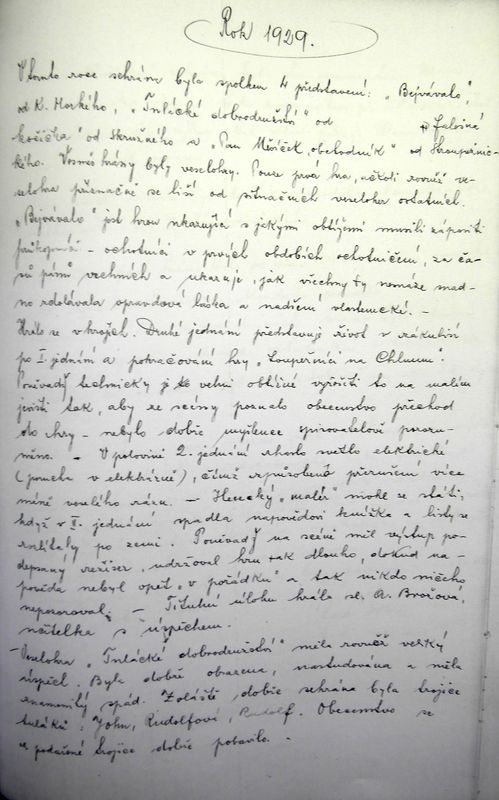 Rok 1929.
V tomto roce sehrána byla spolkem 4 představení: „Bejvávalo",
od K. Horkého, „Tulácké dobrodružství" od „Falešná
kočička" od Skružného a „Pan Měsíček, obchodník" od Stroupežnic-
kého. Vesměs hrány byly veselohry. Pouze prvá hra, ačkoli rovněž ve-
selohra příznačně se liší od situačních veseloher ostatních.
„Bejvávalo" jest hrou ukazující s jakými obtížemi museli zápasiti
průkopníci - ochotníci v prvých obdobích ochotničení, za ča-
sů pánů vrchních a ukazuje, jak všechny ty nesnáze snad-
no zdolávala opravdová láska a nadšení vlastenecké. -
Hrálo se v krojích. Druhé jednání představuje život v zákulisí
po I. jednání a pokračování hry „Loupežníci na Chlumu".
Poněvadž technicky je velmi obtížné vyřešiti to na malém
jevišti tak, aby ze scény poznalo obecenstvo přechod
do hry - nebylo dobře myšlence spisovatelově porozu-
měno. - V polovině 2. jednání zhaslo světlo elektrické
(porucha v elektrárně), čímž způsobeno přerušení více
méně veselého rázu. - Herecký „malér" mohl se státi,
když v I. jednání spadla nápovědovi knížka a listy se
rozlítaly po zemi. Poněvadž na scéně měl výstup po-
depsaný režisér, udržoval hru tak dlouho, dokud ná-
pověda nebyl opět „v pořádku" a tak nikdo ničeho
nepozoroval. - Titulní úlohu hrála sl. A. Brožová,
učitelka s úspěchem.
- Veselohra „Tulácké dobrodružství" měla rovněž velký
úspěch. Byla dobře obsazena, nastudována a měla
znamenitý spád. Zvláště dobře sehrána byla trojice
tuláků: John, Rudolfová, Rudolf. Obecenstvo se
podařené trojice dobře pobavilo. -